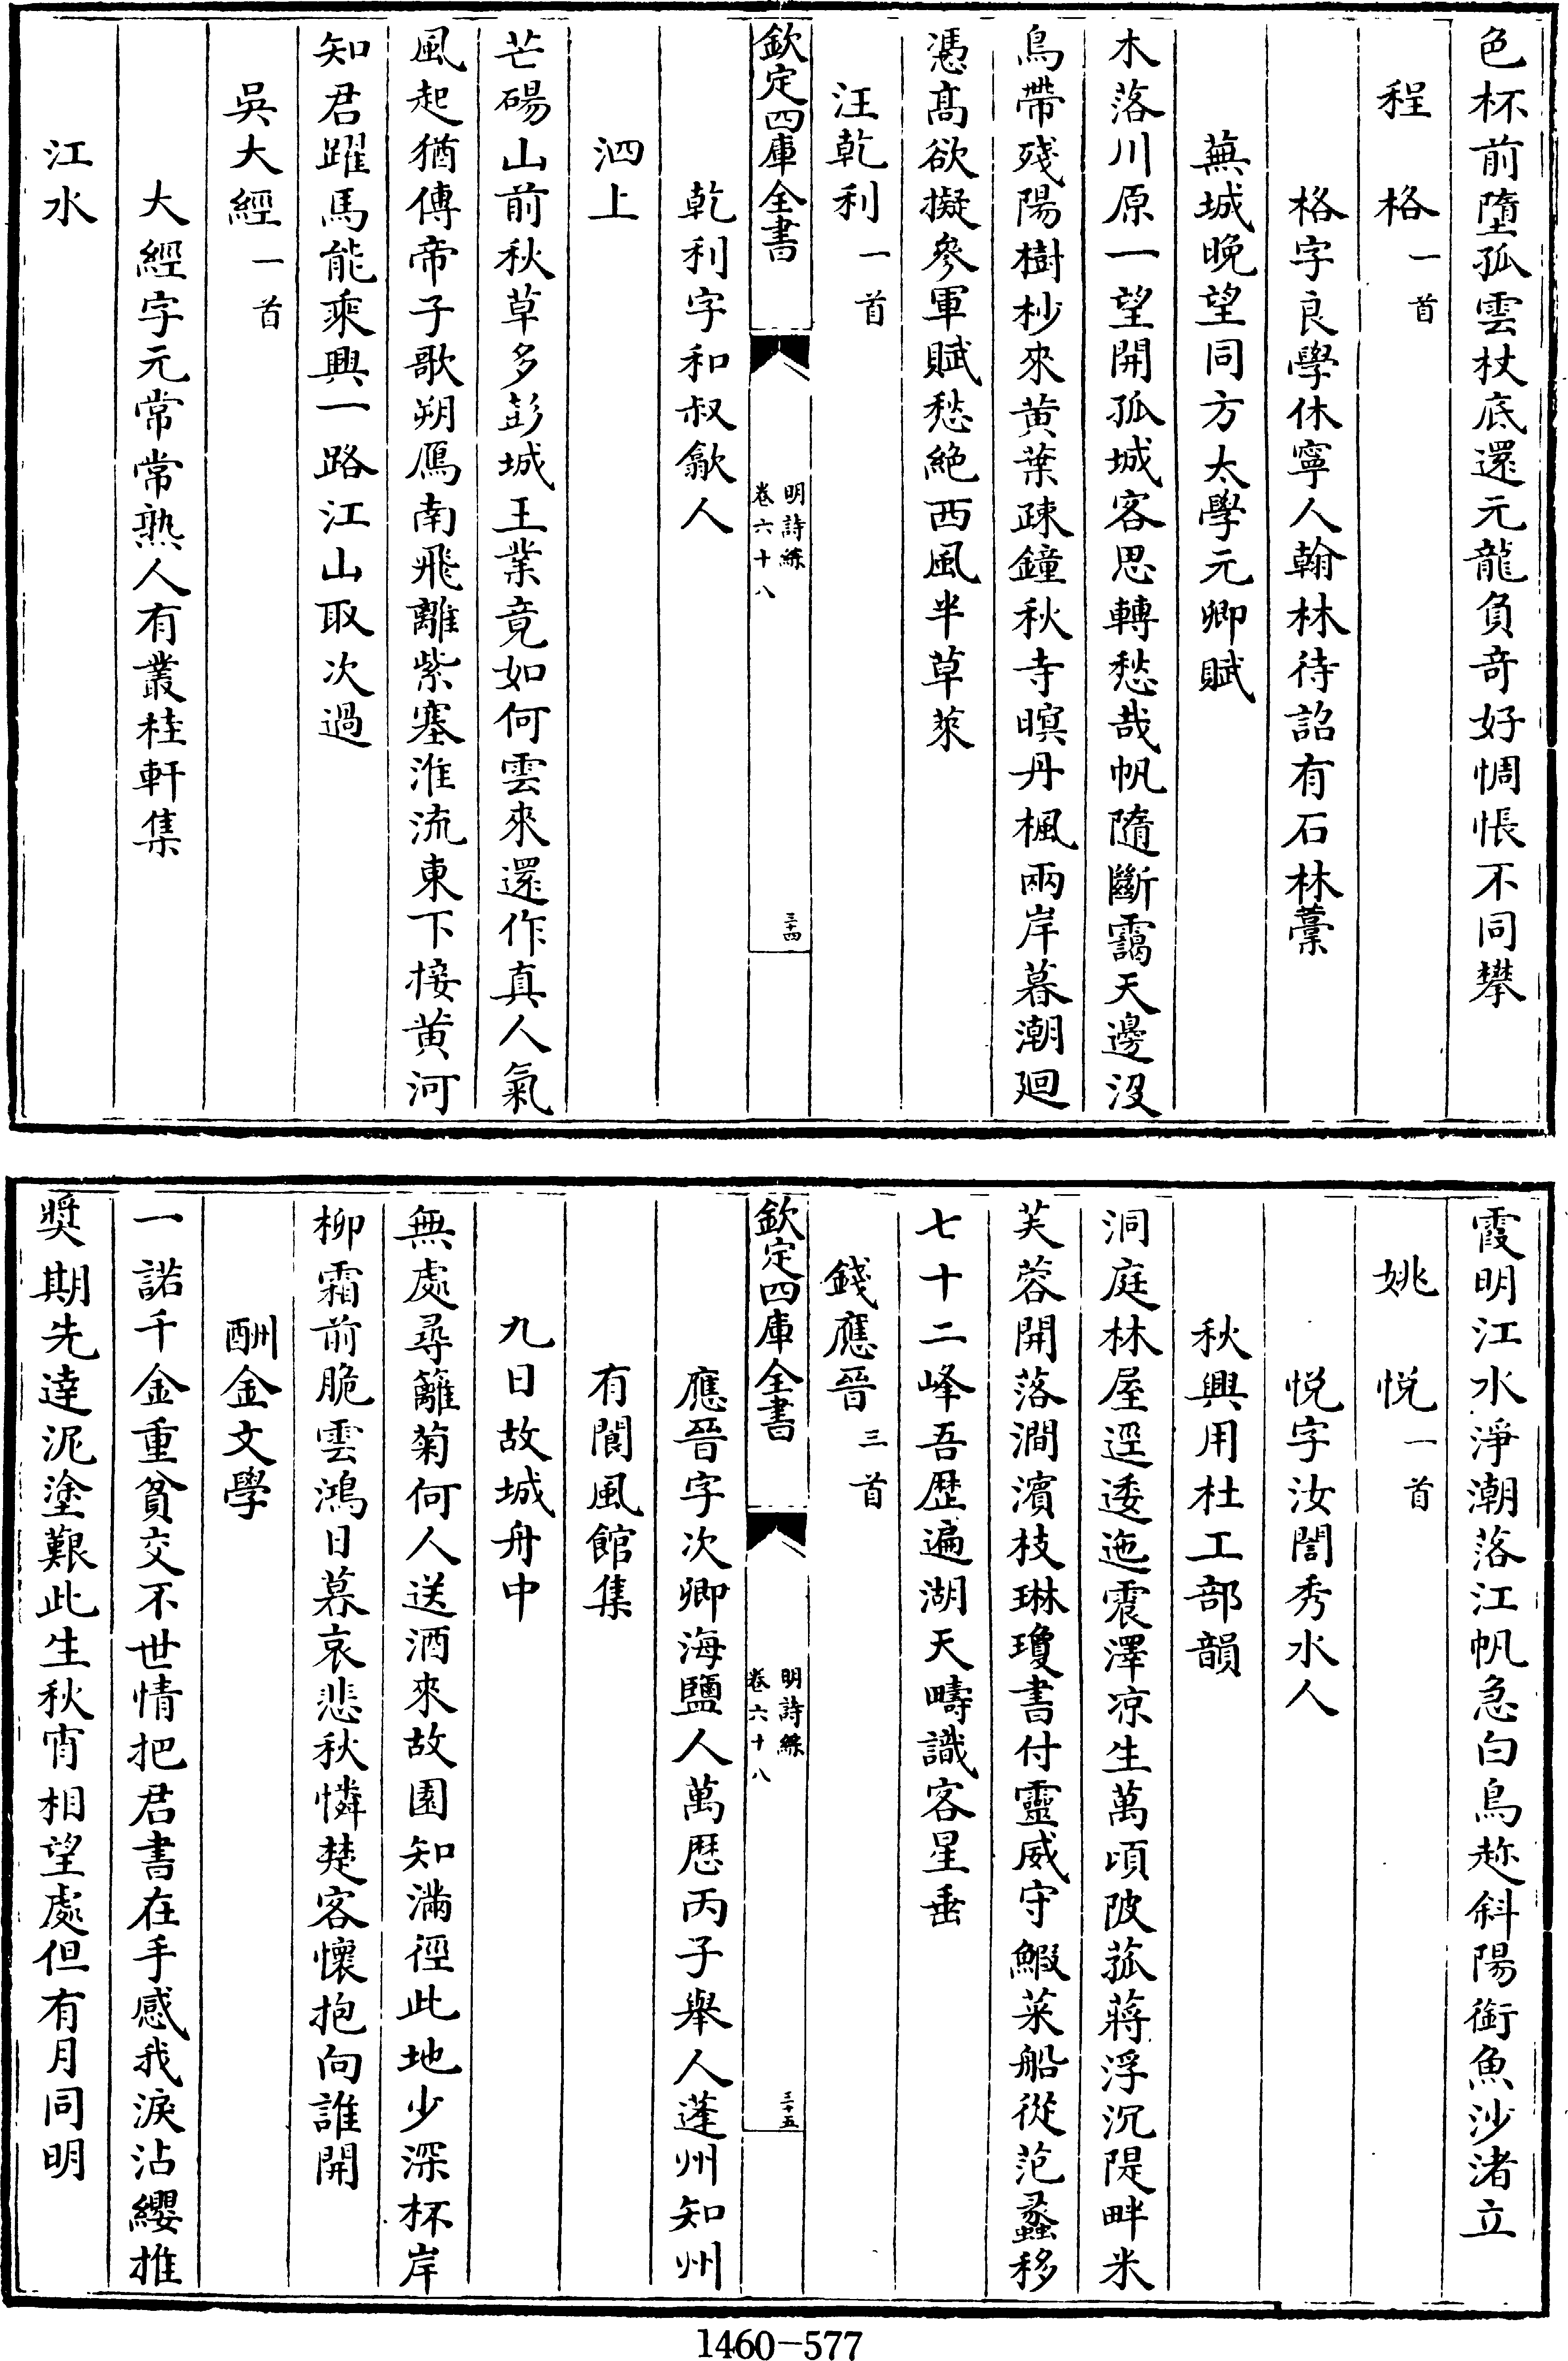 色杯前墮孤雲杖底還元龍負奇好惆悵不同攀
程格一首
格字良學休寧人翰林待詔有石林藁
蕪城晚望同方太學元卿賦
木落川原一望開孤城客思轉愁哉帆隨斷靄天邊沒
鳥帶殘陽樹杪來黃葉疎鐘秋寺暝丹楓兩岸暮潮廻
憑高欲擬參軍賦愁絶西風半草萊
汪乾利一首
欽定四庫全書
明詩綜
卷六十八
三十四
乾利字和叔歙人
泗上
芒碭山前秋草多彭城王業竟如何雲來還作真人氣
風起猶傳帝子歌朔鴈南飛離紫塞淮流東下接黃河
知君躍馬能乘興一路江山取次過
吳大經一首
大經字元常常熟人有叢桂軒集
江水
霞明江水淨潮落江帆急白鳥趂斜陽銜魚沙渚立
姚悅一首
悅字汝誾秀水人
秋興用杜工部韻
洞庭林屋逕逶迤震澤凉生萬頃陂菰蔣浮沉隄畔米
芙蓉開落澗濱枝琳瓊書付靈威守鰕菜船從范蠡移
七十二峰吾歷遍湖天疇識客星垂
錢應晉三首
欽定四庫全書
明詩綜
卷六十八
三十五
應晉字次卿海鹽人萬歷丙子舉人蓬州知州
有閬風館集
九日故城舟中
無處尋籬菊何人送酒來故園知滿徑此地少深杯岸
柳霜前脆雲鴻日暮哀悲秋憐楚客懷抱向誰開
酬金文學
一諾千金重貧交不世情把君書在手感我淚沾纓推
奬期先達泥塗艱此生秋宵相望處但有月同明
1460-577